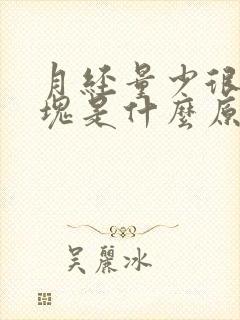 月经量少很
块是什麼原
吴麗冰